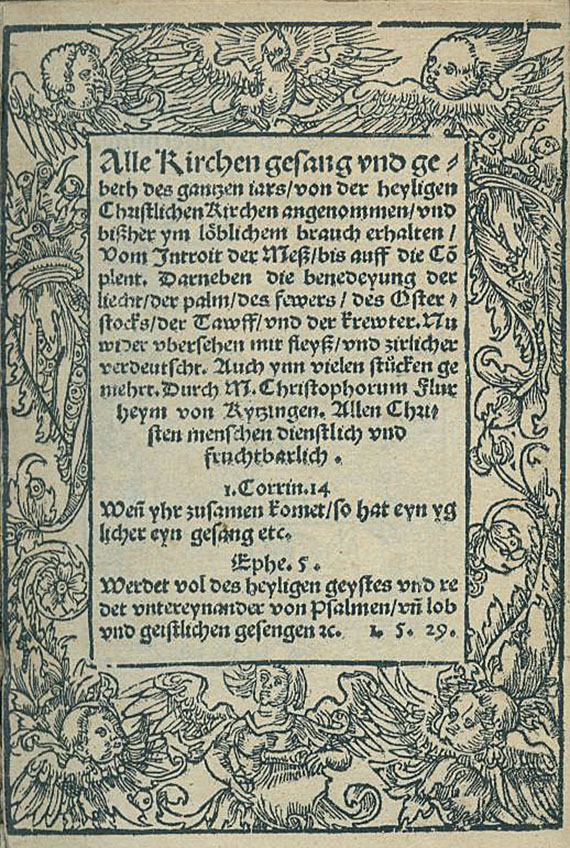 Alle Kirchen gesang vnd ge⸗
beth des gantzen iars/von der heyligen
Christlichen Kirchen angenommen/vnd
bißher ym löblichem brauch erhalten /
Vom Introit der Meß/bis auff die Cō
plent. Darneben die benedeyung der
liecht/der palm/des fewers / des Oster⸗
stocks/der Tawff/vnd der krewter. Nu
wider vbersehen mit fleyß/vnd zirlicher
verdeutscht. Auch ynn vielen stücken ge
mehrt. Durch M. Christophorum Flur
heym von Kytzingen. Allen Chri⸗
sten menschen dienstlich vnd
fruchtbarlich .
1. Corrin. 14
Weñ yhr zusamen komet/so hat eyn yg
licher eyn gesang etc.
Ephe. 5 .
Werdet vol des heyligen geystes vnd re
det vntereynander von Psalmen/vñ lob
vnd geistlichen gesengen ⁊c. 1. 5. 29.